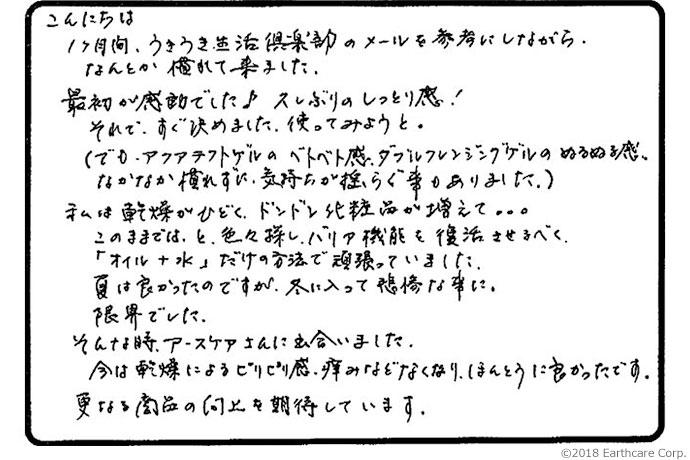 こんにちは
1ヶ月間、うきうき生活倶楽部のメールを参考にしながら、
なんとか慣れて来ました。
最初が感動でした♪ 久しぶりのしっとり感!
それで、すぐ決めました、使ってみようと。
(でも、アクアテクトゲルのベトベト感、ダブルクレンジングゲルのぬるぬる感、
なかなか慣れずに、気持ちが揺らぐ事もありました。)
私は乾燥がひどく、ドンドン化粧品が増えて...
このままでは、と、色々探し、バリア機能を復活させるべく、
「オイル+水」だけの方法で頑張っていました。
夏は良かったのですが、冬に入って悲惨な事に。
限界でした。
そんな時、アースケアさんに出合いました。
今は乾燥によるピリピリ感、痒みなどなくなり、ほんとうに良かったです。
更なる商品の向上を期待しています。
©2018 Earthcare Corp.